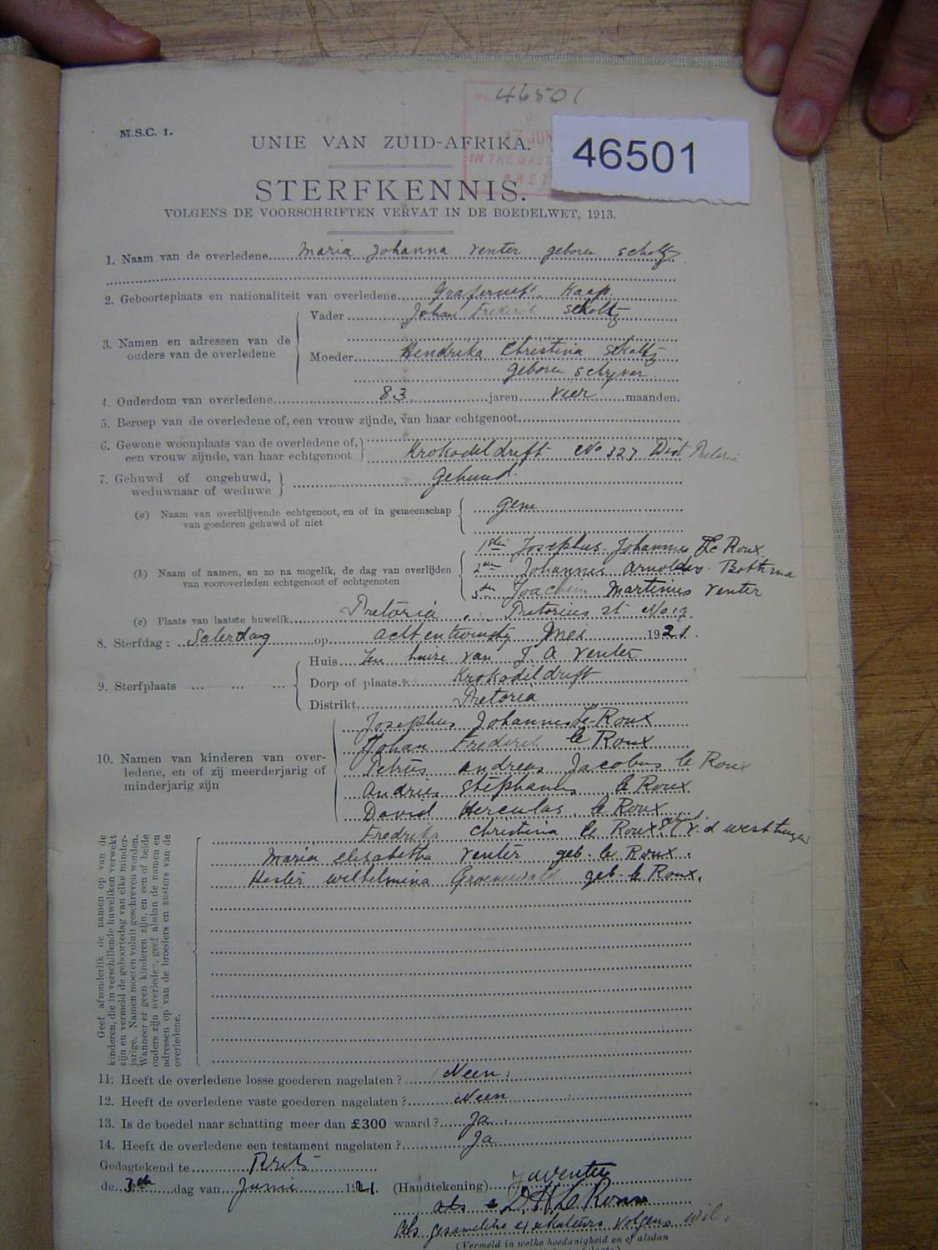 46501
46501
M.S.C. 1.
UNIE VAN ZUID-AFRIKA.
STERFKENNIS.
VOLGENS DE VOORSCHRIFTEN VERVAT IN DE BOEDELWET, 1913.
1. Naam van de overledene Maria Johanna Venter geboren Scholtz
2. Geboorteplaats en nationaliteit van overledene Kaap
3. Namen en adressen van de ouders van de overledene
Vader Johan Frederik Scholtz
Moeder Hendrika Christina Scholtz
geboren
4. Ouderdom van overledene 83 jaren vier maanden.
5. Beroep van de overledene of, een vrouw zijnde, van haar echtgenoot
6. Gewone woonplaats van de overledene of, een vrouw zijnde, van haar echtgenoot Krokodildrift No 327 Dist Pretoria
7. Gehuwd of ongehuwd, weduwnaar of weduwe
(a) Naam van overblijvende echtgenoot, en of in gemeenschap van goederen gehuwd of niet geen
(b) Naam of namen, en zo na mogelik, de dag van overlijden van vooroverleden echtgenoot of echtgenoten
1ste Josephus Johannes Le Roux
2de Johannes Arnoldus Bothma
3de Joachem Martinus Venter
(c) Plaats van laatste huwelik Pretoria, Pretorius st No 12
8. Sterfdag: Saterdag op acht en twintig Mei 1921.
9. Sterfplaats ... ... ...
Huis Ten huize van J. A Venter
Dorp of plaats Krokodildrift
Distrikt Pretoria
10. Namen van kinderen van overledene, en of zij meerderjarig of minderjarig zijn
Josephus Johannes Le Roux
Johan Frederik le Roux
Petrus Andreas Jacobus le Roux
Andries Stephanus le Roux
David Herculas le Roux
Fredrika Christina le Roux v d westhuizen
Maria Elisabetha Venter geb. le Roux.
Hester Wilhelmina Groenewald geb. le Roux.
Geef afzonderlik de namen op van de kinderen, die in verschillende huweliken verwekt zijn en vermeld de geboortedag van elke minderjarige. Namen moeten voluit geschreven worden. Wanneer er geen kinderen zijn, en een of beide ouders zijn overleden, geef alsdan de namen en adressen op van de broeders en zusters van de overledene.
11. Heeft de overledene losse goederen nagelaten? Neen
12. Heeft de overledene vaste goederen nagelaten? Neen
13. Is de boedel naar schatting meer dan £300 waard? Ja
14. Heeft de overledene een testament nagelaten? Ja
Gedagtekend te Brits
de 3de dag van Junie 1921 (Handtekening) J A Venter
als D H Le Roux
Als eksekuteurs volgens wil.
(Vermeld in welke hoedanigheid en of alsdan